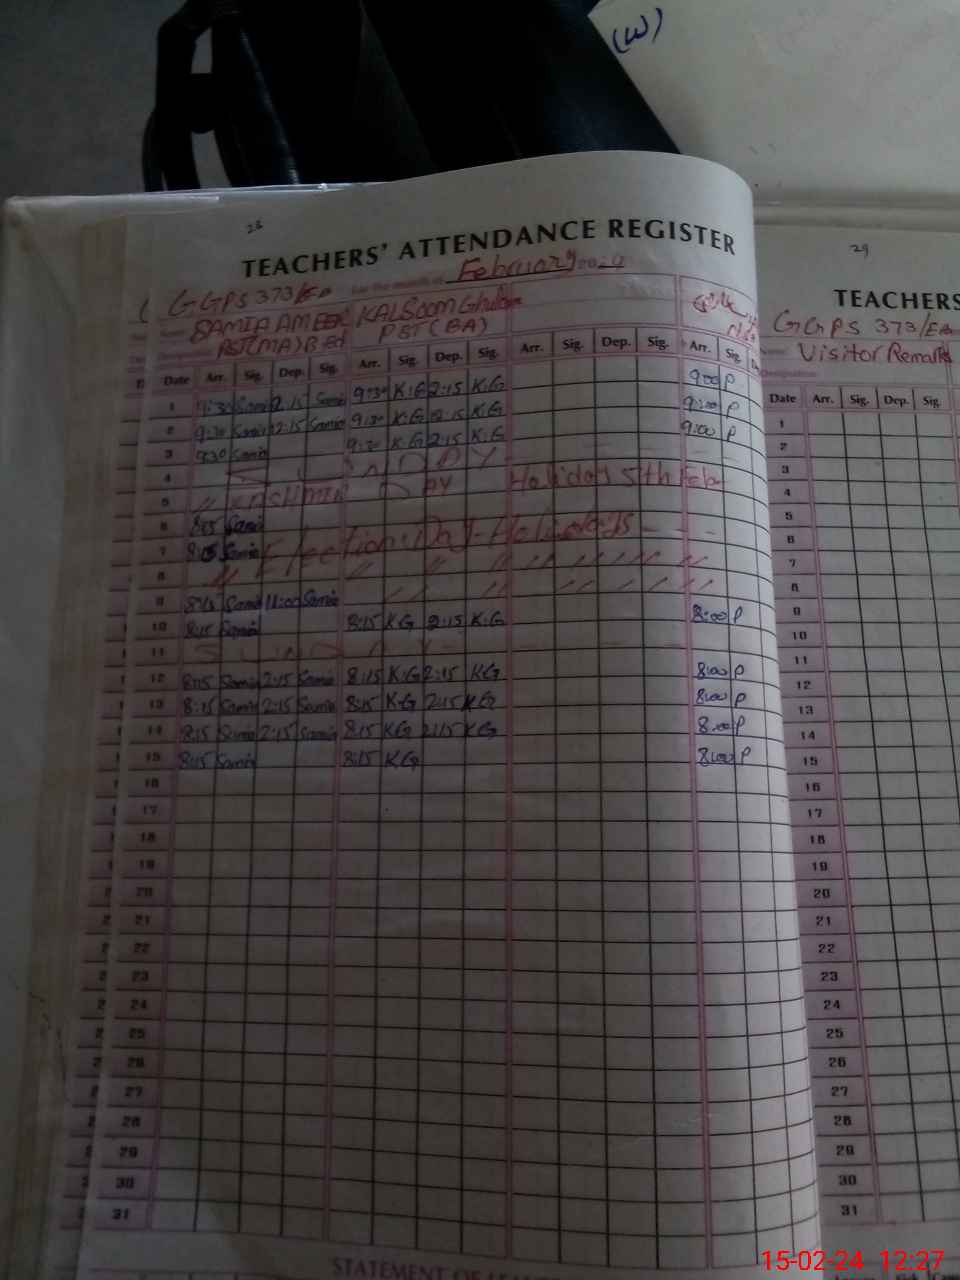 (W)
28
TEACHERS' ATTENDANCE REGISTER
For the month of February 20
GGPS 373/EB
SAMIA AMEER KALSOOM Ghulam
PST(MA) B.Ed PST (BA)
Date Arr. Sig. Dep. Sig. Arr. Sig. Dep. Sig. Arr. Sig. Dep. Sig. Arr. Sig.
1 9:30 Samia 2:15 Samia 9:30 K.G 2:15 K.G 9:00 P
2 9:30 Samia 2:15 Samia 9:30 K.G 2:15 K.G 9:00 P
3 9:30 Samia 9:30 K.G 2:15 K.G 9:00 P
4 S U N D A Y
5 KASHMIR DAY Holiday 5th Feb
6 8:15 Samia
7 8:15 Samia Election Day Holidays
8 " " " " " " " " "
9 8:15 Samia 11:00 Samia
10 8:15 Samia 8:15 K.G 2:15 K.G 8:00 P
11 S U N D A Y
12 8:15 Samia 2:15 Samia 8:15 K.G 2:15 KG 8:00 P
13 8:15 Samia 2:15 Samia 8:15 K.G 2:15 KG 8:00 P
14 8:15 Samia 2:15 Samia 8:15 KG 2:15 KG 8:00 P
15 8:15 Samia 8:15 KG 8:00 P
16
17
18
19
20
21
22
23
24
25
26
27
28
29
30
31
STATEMENT OF
29
TEACHERS
GGPS 373/EB
Visitor Remarks
Date Arr. Sig. Dep. Sig.
1
2
3
4
5
6
7
8
9
10
11
12
13
14
15
16
17
18
19
20
21
22
23
24
25
26
27
28
29
30
31
15-02-24 12:27